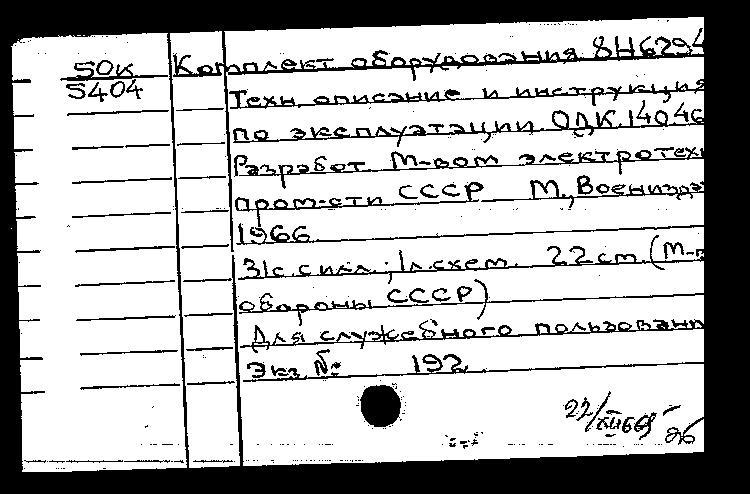 50к
5404
Комплект оборудования 8Н6294
Техн. описание и инструкция
по эксплуатации. ОДК.14046
Разработ. М-вом электротехн
пром-сти СССР М., Воениздат
1966
31с. с илл.; 1 л. схем. 22 cm. (М-в
обороны СССР)
Для служебного пользован
Экз. № 192
22/XII 66г